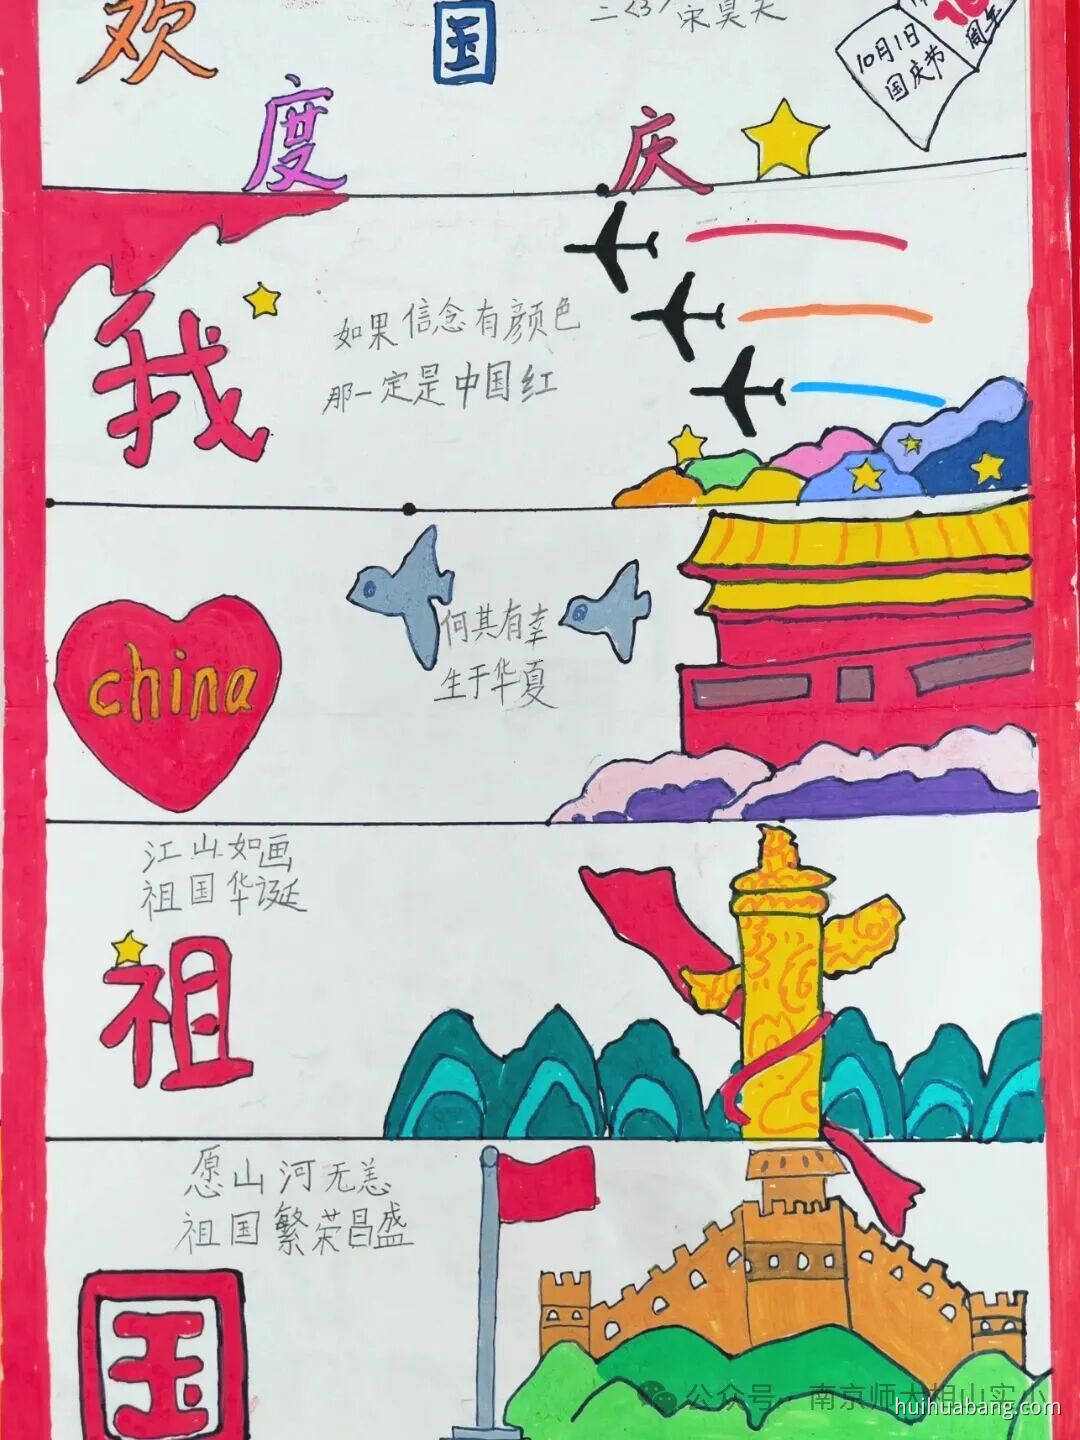 欢度国庆
二(3) 宋昊天
10月1日
国庆节
周年
我
如果信念有颜色
那一定是中国红
china
何其有幸
生于华夏
江山如画
祖国华诞
祖
愿山河无恙
祖国繁荣昌盛
国
公众号·南京师大相山实小
huihuabang.com